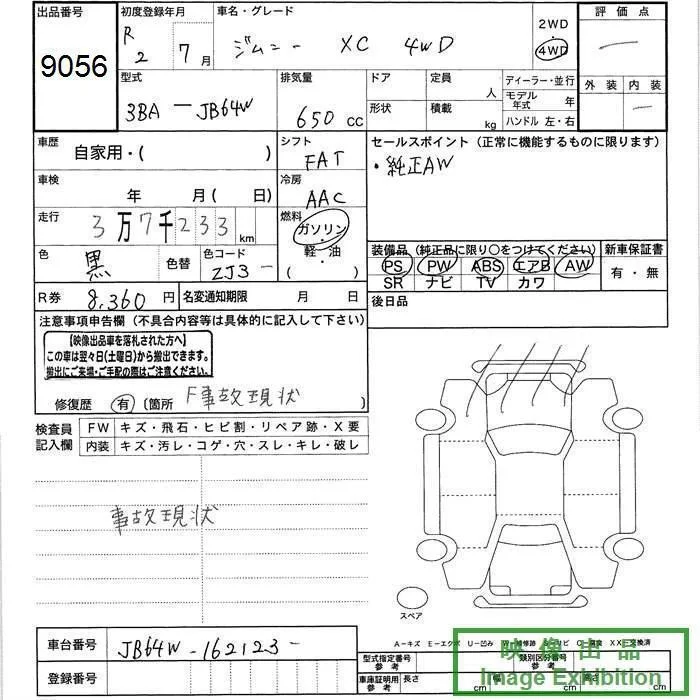 出品番号 9056
初度登録年月 R 2 7 月
車名・グレード ジムニー XC 4WD
2WD 4WD
評価点 —
型式 3BA - JB64W
排気量 650 cc
ドア 形状
定員 人 積載 kg
ディーラー・並行
モデル年式 年
ハンドル 左・右
外装 内装 —
車歴 自家用・( )
シフト FAT
セールスポイント (正常に機能するものに限ります)
・純正AW
車検 年 月( 日)
冷房 AAC
走行 3万7千233 km
燃料 ガソリン・軽・油 ( )
色 黒 色替 色コード ZJ3-
装備品 (純正品に限り○をつけてください)
PS PW ABS エアB AW
SR ナビ TV カワ
新車保証書
有・無
R券 8,360 円 名変通知期限 月 日
後日品
注意事項申告欄 (不具合内容等は具体的に記入して下さい)
【映像出品車を落札された方へ】
この車は翌々日(土曜日)から搬出できます。
搬出にご来場・ご手配の際はご注意ください。
修復歴 有 (箇所 F事故現状 )
検査員記入欄
FW キズ・飛石・ヒビ割・リペア跡・X要
内装 キズ・汚レ・コゲ・穴・スレ・キレ・破レ
事故現状
スペア
A—キズ E—エクボ U—凹み
車台番号 JB64W-162123-
登録番号
型式指定番号 参考
類別区分番号 参考
車庫証明用 参考 長さ cm 幅 cm cm
映像出品
Image Exhibition